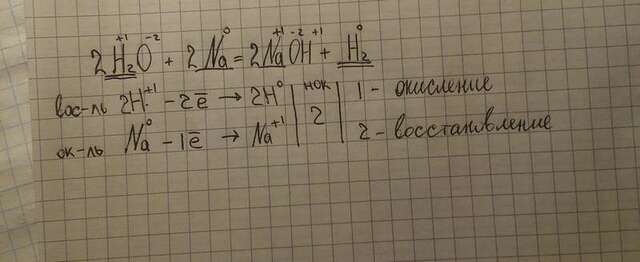 2H₂⁺¹O⁻² + 2Na⁰ = 2Na⁺¹O⁻²H⁺¹ + H₂⁰
вос-ль 2H⁺¹ - 2ē → 2H⁰ | НОК | 1 - окисление
ок-ль Na⁰ - 1ē → Na⁺¹ | 2 | 2 - восстановление